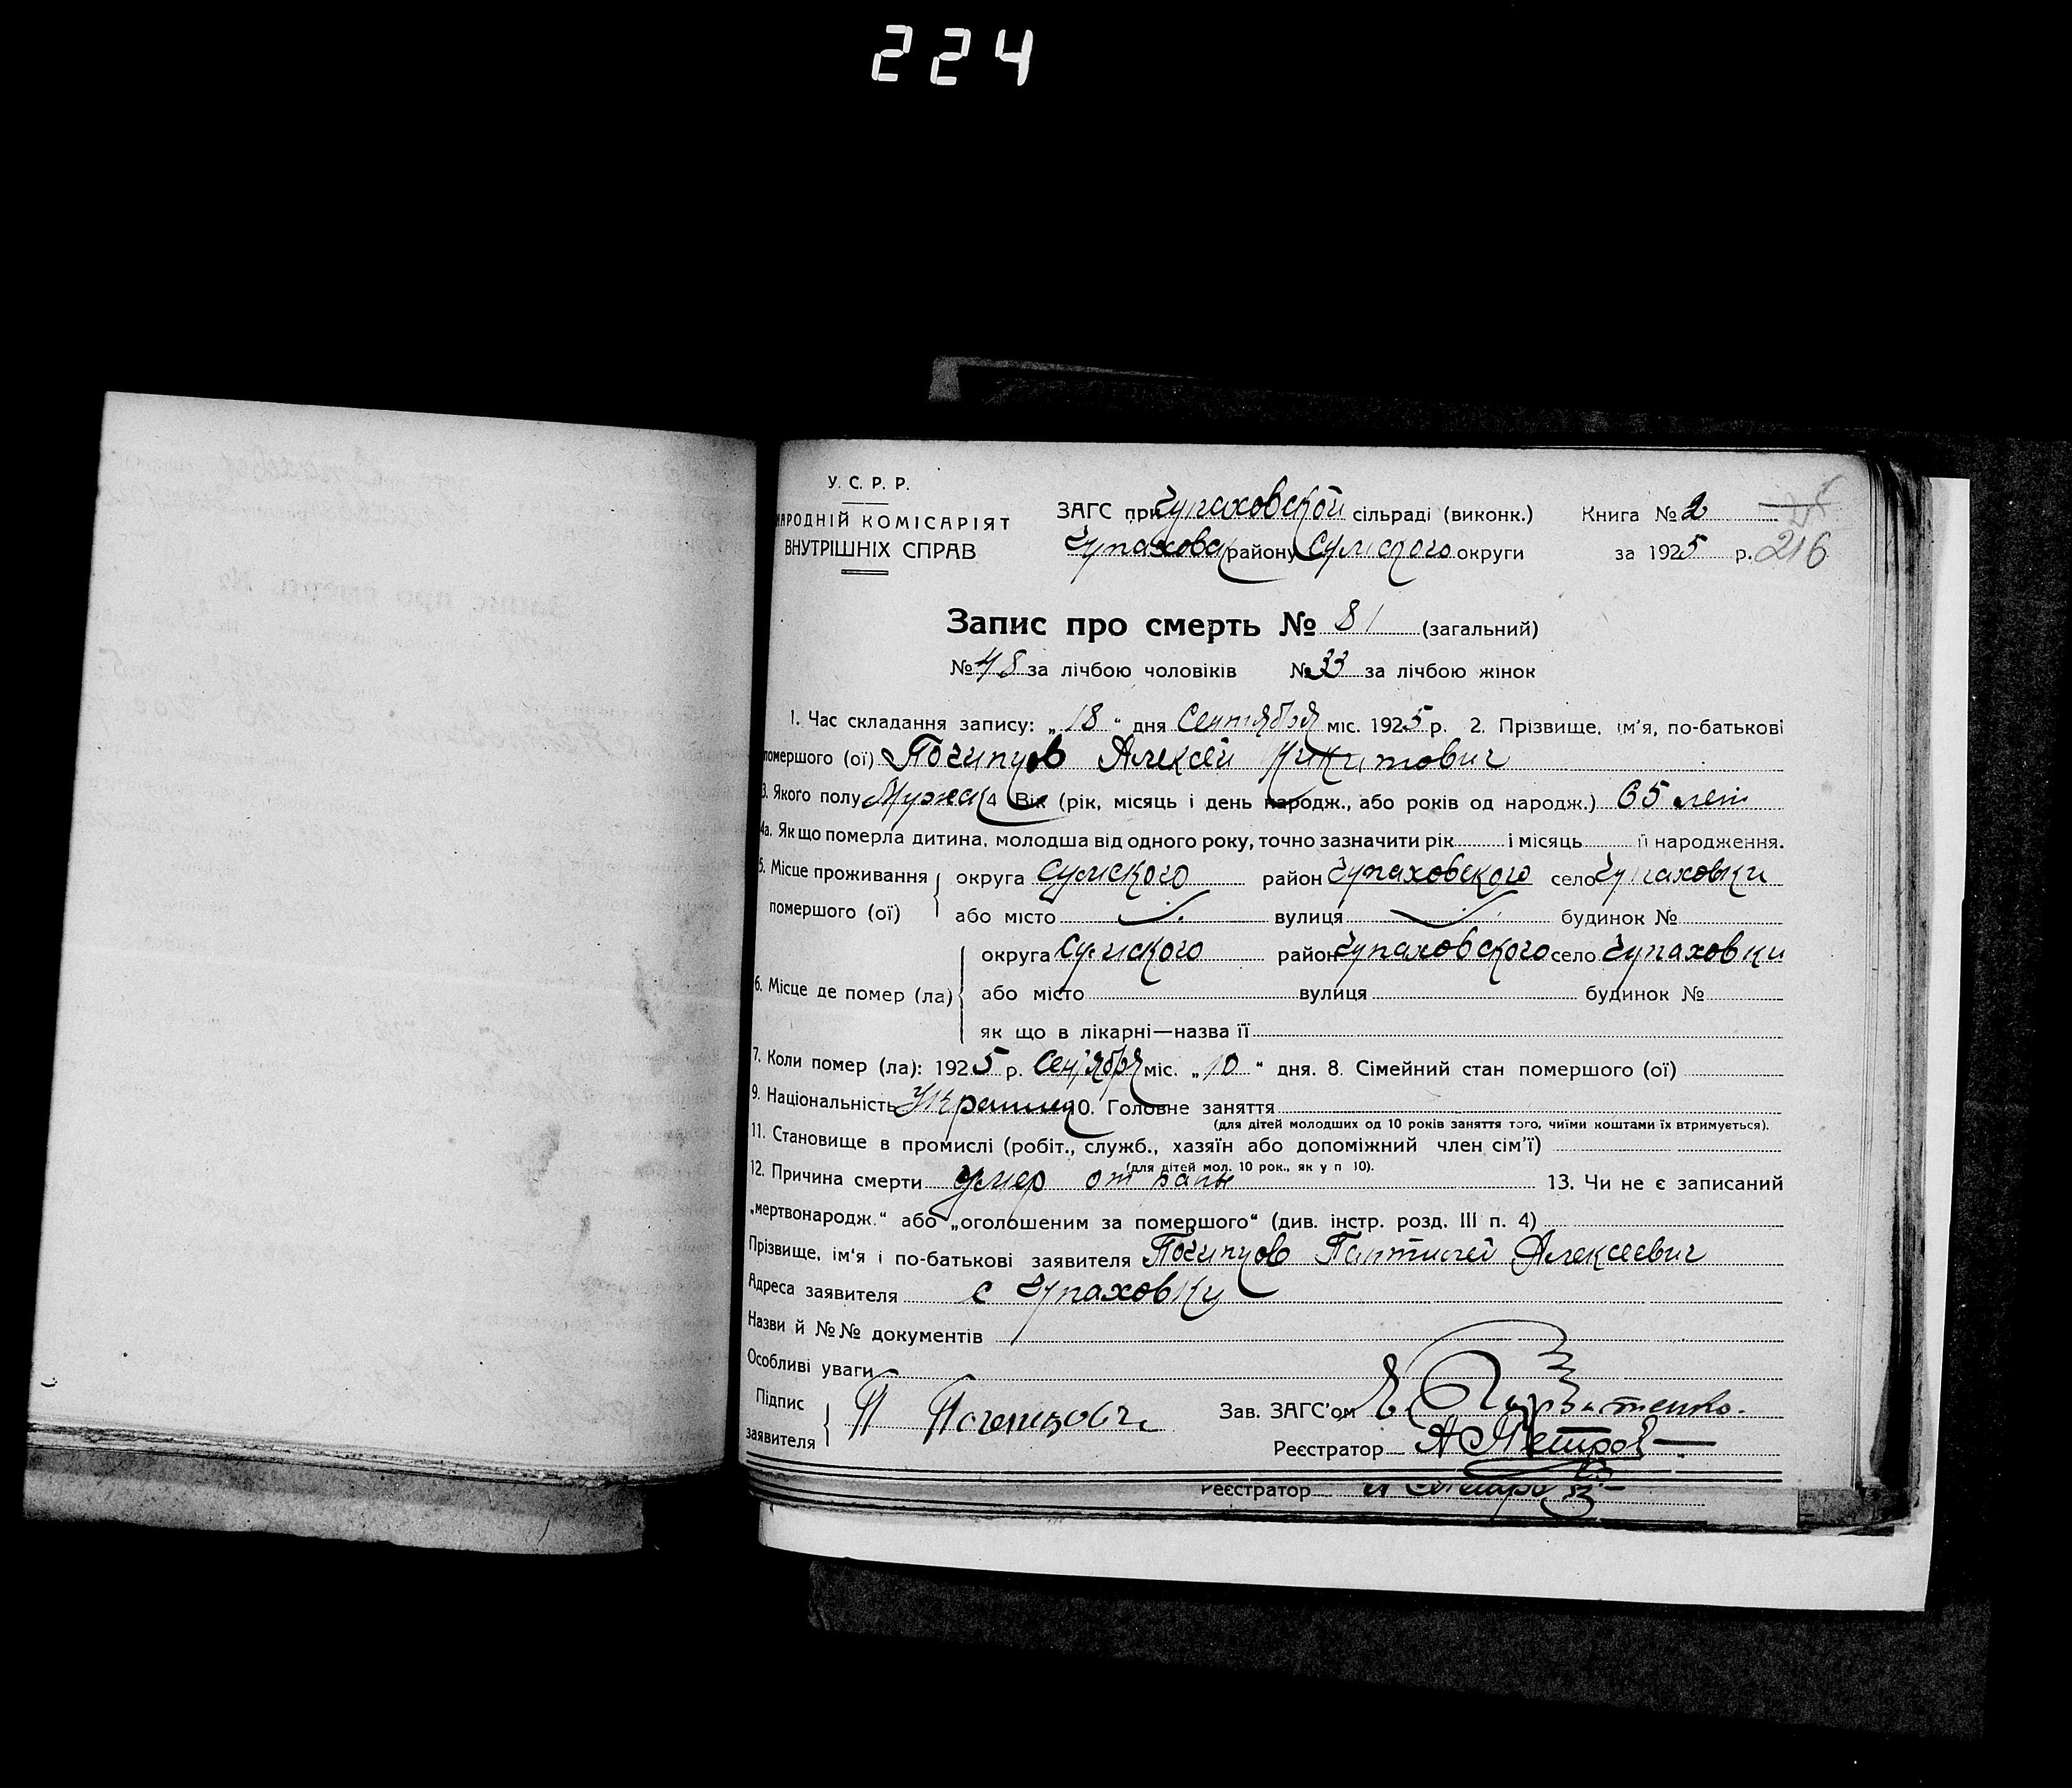 224
У. С. Р. Р.
НАРОДНІЙ КОМІСАРІЯТ
ВНУТРІШНІХ СПРАВ
ЗАГС при Чупаховской сільраді (виконк.) Книга № 2
Чупаховск району Сумского округи за 1925 р. 216
Запис про смерть № 81 (загальний)
№ 48 за лічбою чоловіків № 33 за лічбою жінок
1. Час складання запису: „18“ дня Сентября міс. 1925 р. 2. Прізвище, ім'я, по-батькові
помершого (ої) Почипцов Алексей Никитович
3. Якого полу Мужск 4 Вік (рік, місяць і день народж., або років од народж.) 65 лет
4а. Як що померла дитина, молодша від одного року, точно зазначити рік і місяць її народження.
5. Місце проживання округа Сумского район Чупаховского село Чупаховки
помершого (ої) або місто вулиця будинок №
округа Сумского район Чупаховского село Чупаховки
6. Місце де помер (ла) або місто вулиця будинок №
як що в лікарні—назва її
7. Коли помер (ла): 1925 р. Сентября міс. „10“ дня. 8. Сімейний стан помершого (ої)
9. Національність 10. Головне заняття
(для дітей молодших од 10 років заняття того, чиїми коштами їх втримується).
11. Становище в промислі (робіт., служб., хазяїн або допоміжний член сім'ї)
(для дітей мол. 10 рок., як у п 10).
12. Причина смерти умер от 13. Чи не є записаний
„мертвонародж.“ або „оголошеним за помершого“ (див. інстр. розд. III п. 4)
Прізвище, ім'я і по-батькові заявителя Почипцов Алексеевич
Адреса заявителя с Чупаховку
Назви й №№ документів
Особливі уваги
Підпис
заявителя П Почепцовъ Зав. ЗАГС'ом
Реєстратор А Петров
Реєстратор